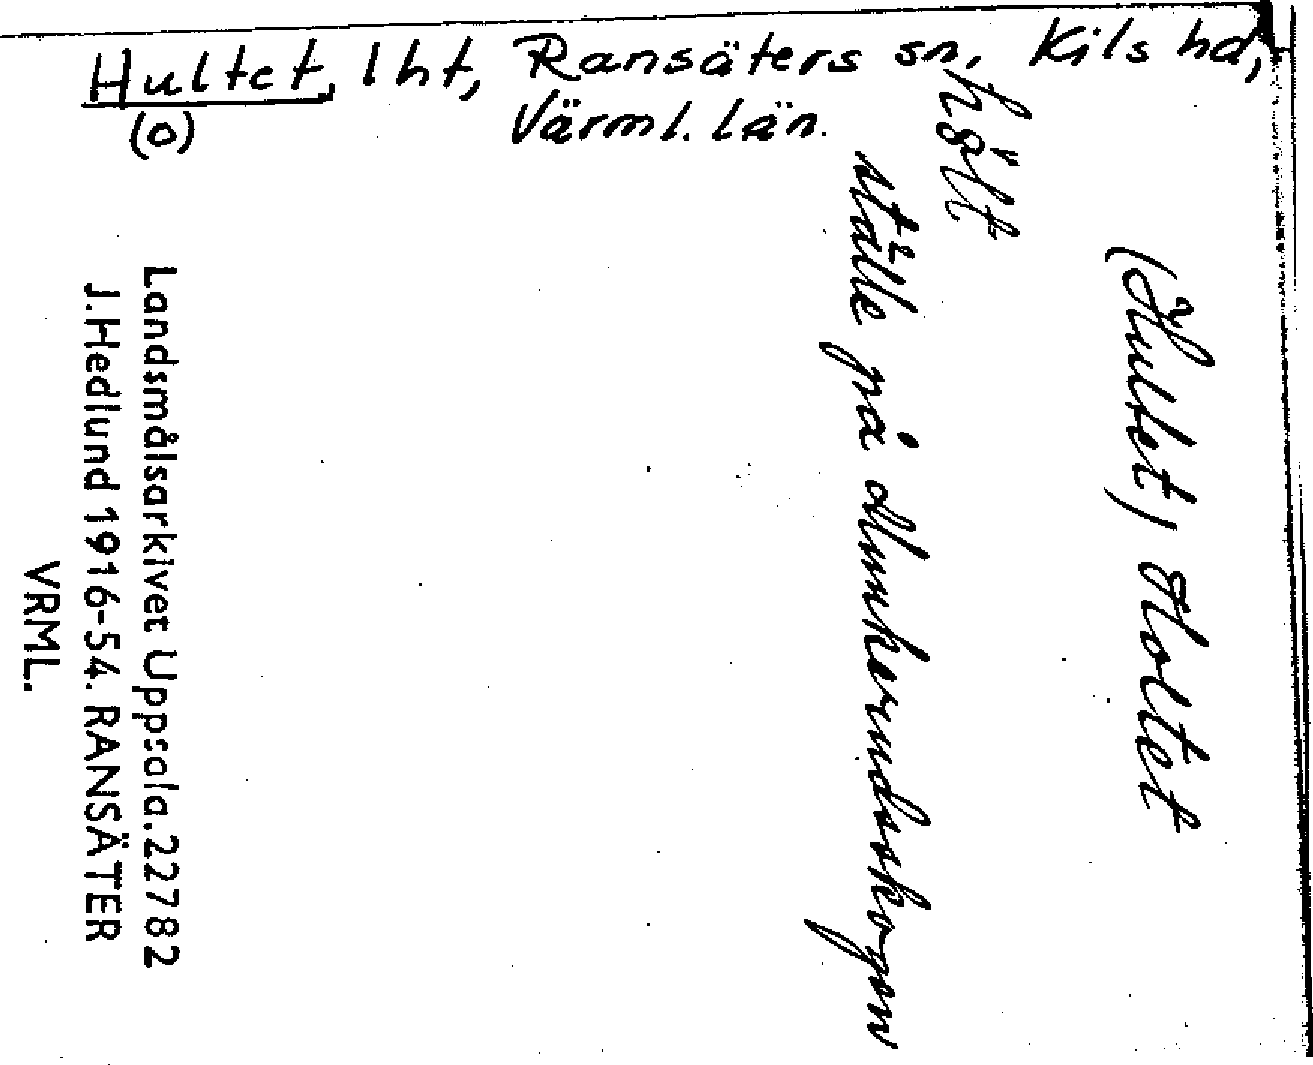 Hultet, lht, Ransäters sn, Kils hd,
(o) Värml. län.
(Hultet) Holtet
hölt
ställe på Munkerudsskogen
Landsmålsarkivet Uppsala. 22782
J. Hedlund 1916-54. RANSÄTER
VRML.